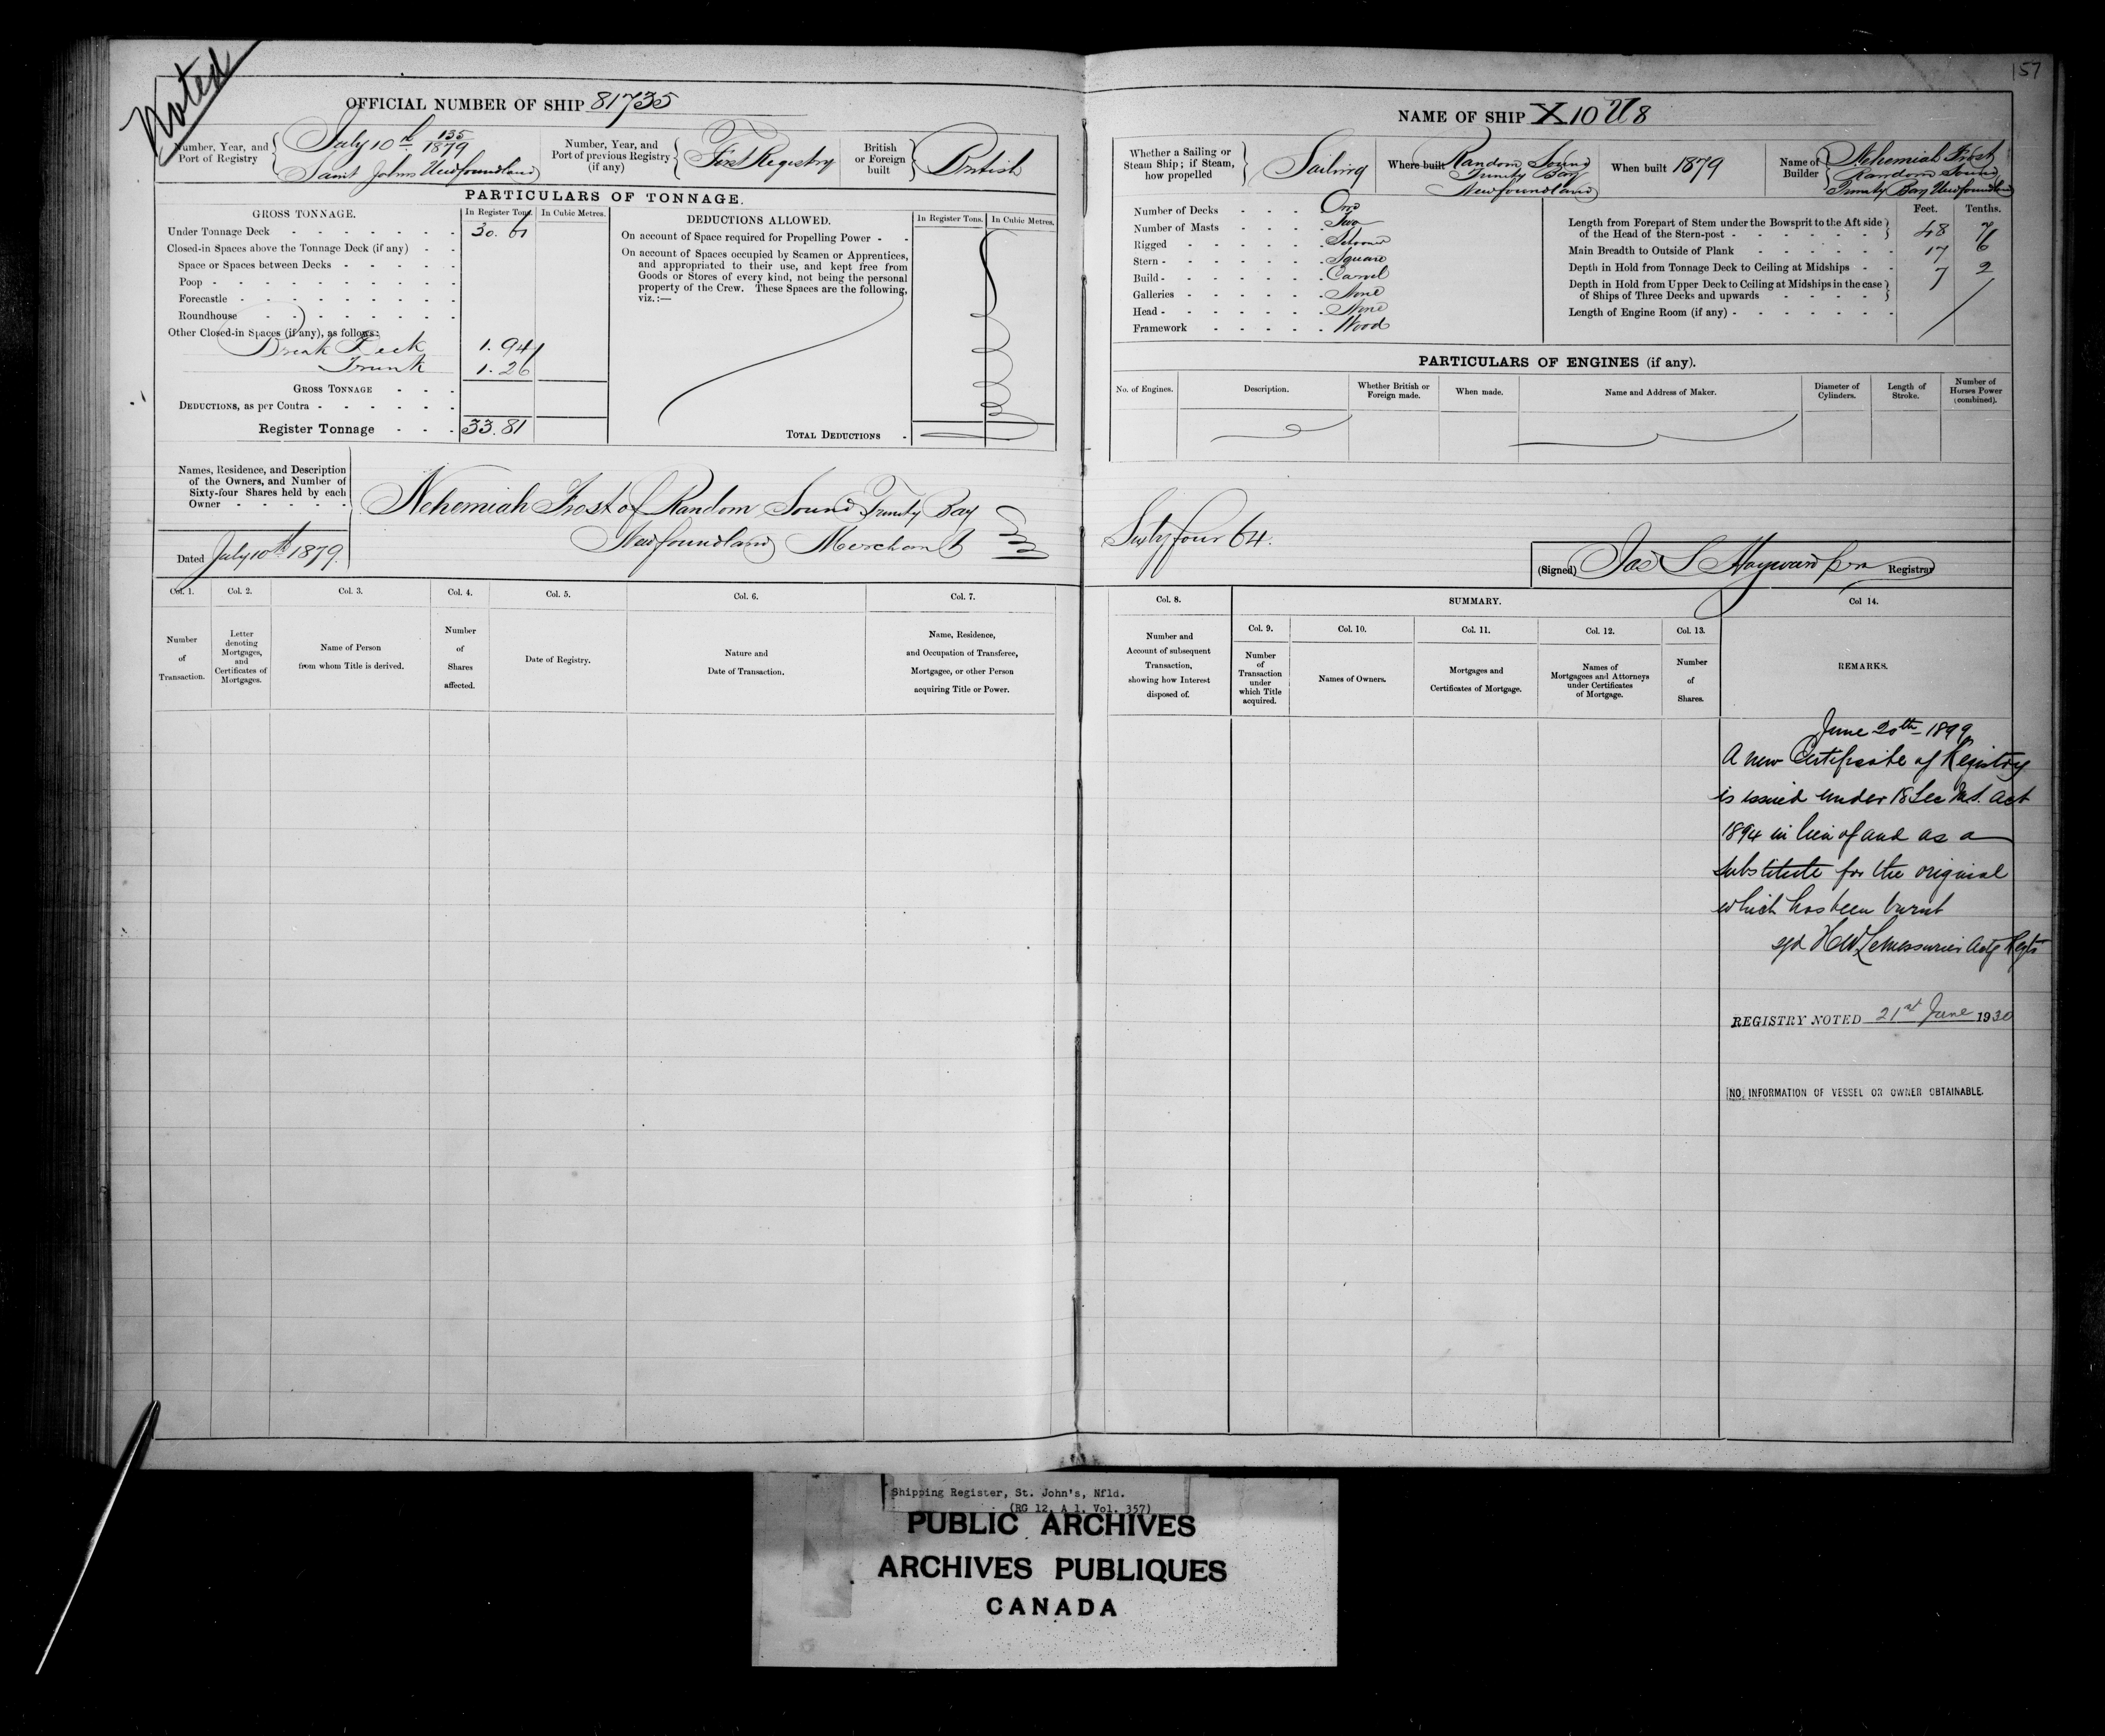 Noted
157
OFFICIAL NUMBER OF SHIP 81735
Number, Year, and Port of Registry
July 10th 155 1879
Saint Johns Newfoundland
Number, Year, and Port of previous Registry (if any)
First Registry
British or Foreign built
British
PARTICULARS OF TONNAGE.
GROSS TONNAGE.
In Register Tons. In Cubic Metres.
Under Tonnage Deck 30. 61
Closed-in Spaces above the Tonnage Deck (if any)
Space or Spaces between Decks
Poop
Forecastle
Roundhouse
Other Closed-in Spaces (if any), as follows:
Break Deck 1. 94
Trunk 1. 26
GROSS TONNAGE
DEDUCTIONS, as per Contra
Register Tonnage 33.81
DEDUCTIONS ALLOWED.
In Register Tons. In Cubic Metres.
On account of Space required for Propelling Power
On account of Spaces occupied by Seamen or Apprentices,
and appropriated to their use, and kept free from
Goods or Stores of every kind, not being the personal
property of the Crew. These Spaces are the following,
viz.:—
TOTAL DEDUCTIONS
Names, Residence, and Description
of the Owners, and Number of
Sixty-four Shares held by each
Owner
Dated July 10th 1879.
Nehemiah Frost of Random Sound Trinity Bay
Newfoundland Merchant
Col. 1. Col. 2. Col. 3. Col. 4. Col. 5. Col. 6. Col. 7.
Number of Transaction.
Letter denoting Mortgages, and Certificates of Mortgages.
Name of Person from whom Title is derived.
Number of Shares affected.
Date of Registry.
Nature and Date of Transaction.
Name, Residence, and Occupation of Transferee, Mortgagee, or other Person acquiring Title or Power.
NAME OF SHIP X 10 U 8
Whether a Sailing or Steam Ship; if Steam, how propelled
Sailing
Where built
Random Sound
Trinity Bay
Newfoundland
When built 1879
Name of Builder
Nehemiah Frost
Random Sound
Trinity Bay Newfoundland
Number of Decks One
Number of Masts Two
Rigged Schooner
Stern Square
Build Carvel
Galleries None
Head None
Framework Wood
Feet. Tenths.
Length from Forepart of Stem under the Bowsprit to the Aft side
of the Head of the Stern-post 48 7
Main Breadth to Outside of Plank 17 6
Depth in Hold from Tonnage Deck to Ceiling at Midships 7 2
Depth in Hold from Upper Deck to Ceiling at Midships in the case
of Ships of Three Decks and upwards
Length of Engine Room (if any)
PARTICULARS OF ENGINES (if any).
No. of Engines.
Description.
Whether British or Foreign made.
When made.
Name and Address of Maker.
Diameter of Cylinders.
Length of Stroke.
Number of Horses Power (combined).
Sixty four 64.
(Signed) Jas S Hayward Registrar
Col. 8.
Number and Account of subsequent Transaction, showing how Interest disposed of.
SUMMARY.
Col. 9. Col. 10. Col. 11. Col. 12. Col. 13.
Number of Transaction under which Title acquired.
Names of Owners.
Mortgages and Certificates of Mortgage.
Names of Mortgagees and Attorneys under Certificates of Mortgage.
Number of Shares.
Col 14.
REMARKS.
June 20th 1899
A new Certificate of Registry
is issued under 18 Sec M.S. Act
1894 in lieu of and as a
substitute for the original
which has been burnt
sgd H W LeMessurier Actg Regtr
REGISTRY NOTED 21st June 1930
NO INFORMATION OF VESSEL OR OWNER OBTAINABLE.
Shipping Register, St. John's, Nfld.
(RG 12, A 1, Vol. 357)
PUBLIC ARCHIVES
ARCHIVES PUBLIQUES
CANADA